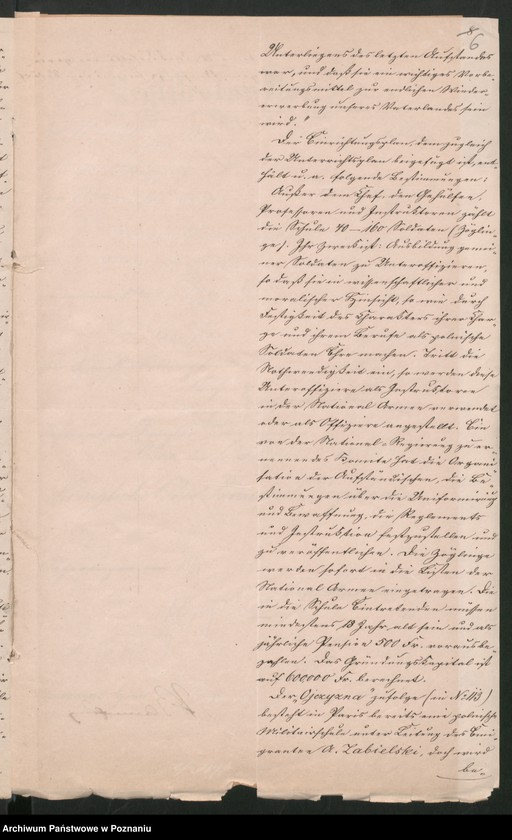 6
Unterliegens des letzten Aufstandes
war, und daß sie ein wichtiges Vorbe-
reitungsmittel zur endlichen Wieder-
erwerbung unseres Vaterlandes sein
wird."
Der Einrichtungsplan, dem zugleich
der Unterrichtsplan beigefügt ist, ent-
hält u. a. folgende Bestimmungen:
Außer dem Chef, den Gehülfen,
Professoren und Instruktoren zählt
die Schule 40-160 Soldaten (Zöglin-
ge). Ihr Zweck ist: Ausbildung gemei-
ner Soldaten zu Unteroffizieren,
so daß sie in wissenschaftlicher und
moralischer Hinsicht, so wie durch
Festigkeit des Charakters ihrer Char-
ge und ihrem Berufe als polnische
Soldaten Ehre machen. Tritt die
Nothwendigkeit ein, so werden diese
Unteroffiziere als Instruktoren
in der National Armee verwendet
oder als Offiziere angestellt. Ein
von der National-Regierung zu er-
nennendes Komite hat die Organi-
sation der Aufständischen, die Be-
stimmungen über die Uniformirung
und Bewaffnung, die Reglements
und Instruktion festzustellen und
zu veröffentlichen. Die Zöglinge
werden sofort in die Listen der
National Armee eingetragen. Die
in die Schule Eintretenden müssen
mindestens 18 Jahr alt sein und als
jährliche Pension 500 Fr. vorausbe-
zahlen. Das Gründungskapital ist
auf 600000 Fr. berechnet.
Der „Ojczyzna" zufolge (in No 113)
besteht in Paris bereits eine polnische
Militairschule unter Leitung des Emi-
granten A. Zabielski, doch wird
be-
Archiwum Państwowe w Poznaniu